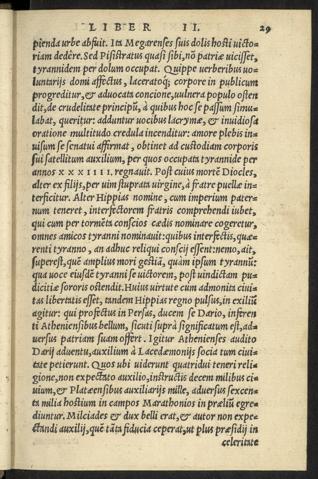 LIBER II. 29
pienda urbe abfuit. Ita Megarenses suis dolis hosti victo=
riam dedére. Sed Pisistratus quasi sibi, nõ patriæ vicisset,
tyrannidem per dolum occupat. Quippe uerberibus uo=
luntarijs domi affectus, laceratoq; corpore in publicum
progreditur, & aduocata concione, uulnera populo osten
dit, de crudelitate principũ, à quibus hoc se passum simu=
labat, queritur: adduntur uocibus lacrymæ, & inuidiosa
oratione multitudo credula incenditur: amore plebis in=
uisum se senatui affirmat, obtinet ad custodiam corporis
sui satellitum auxilium, per quos occupata tyrannide per
annos XXXIIII. regnauit. Post cuius mortẽ Diocles,
alter ex filijs, per uim stuprata uirgine, à fratre puellæ in=
terficitur. Alter Hippias nomine, cum imperium pater=
num teneret, interfectorem fratris comprehendi iubet,
qui cum per tormẽta conscios cædis nominare cogeretur,
omnes amicos tyranni nominauit: quibus interfectis, quæ=
renti tyranno, an adhuc reliqui conscij essent: nemo, ait,
superest, quẽ amplius mori gestiã, quàm ipsum tyrannũ:
qua uoce eiusdẽ tyranni se uictorem, post uindictam pu=
dicitiæ sororis ostendit. Huius uirtute cùm admonita ciui=
tas libertatis esset, tandem Hippias regno pulsus, in exiliũ
agitur: qui profectus in Persas, ducem se Dario, inferen
ti Atheniensibus bellum, sicuti suprà significatum est, ad=
uersus patriam suam offert. Igitur Athenienses audito
Darij aduentu, auxilium à Lacedæmonijs socia tum ciui=
tate petierunt. Quos ubi uiderunt quatridui teneri reli=
gione, non expectato auxilio, instructis decem milibus ci=
uium, & Platæensibus auxiliarijs mille, aduersus sexcen=
ta milia hostium in campos Marathonios in præliũ egre=
diuntur. Milciades & dux belli erat, & autor non expe=
ctandi auxilij, quẽ tãta fiducia ceperat, ut plus præsidij in
celeritate